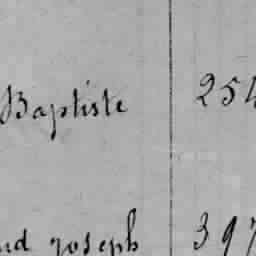 Baptiste 254
nd joseph 397